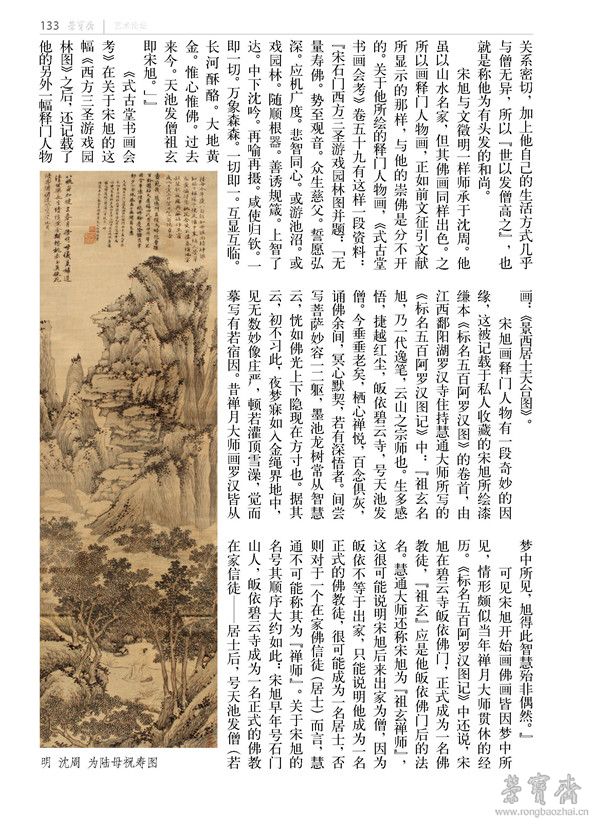 133 荣宝斋 | 艺术论坛
关系密切，加上他自己的生活方式几乎
与僧无异，所以『世以发僧高之』，也
就是称他为有头发的和尚。
宋旭与文徵明一样师承于沈周。他
虽以山水名家，但其佛画同样出色。之
所以画释门人物画，正如前文征引文献
所显示的那样，与他的崇佛是分不开
的。关于他所绘的释门人物画，《式古堂
书画会考》卷五十九有这样一段资料：
『宋石门西方三圣游戏园林图并题：「无
量寿佛。势至观音。众生慈父。誓愿弘
深。应机广度。悲智同心。或游池沼。或
戏园林。随顺根器。善诱规箴。上智了
达。中下沈吟。再喻再摄。咸使归钦。一
即一切。万象森森。一切即一。互显互临。
长河酥酪。大地黄
金。惟心惟佛。过去
来今。天池发僧祖玄
即宋旭。」』
《式古堂书画会
考》在关于宋旭的这
幅《西方三圣游戏园
林图》之后，还记载了
他的另外一幅释门人物
画：《景西居士天台图》。
宋旭画释门人物有一段奇妙的因
缘，这被记载于私人收藏的宋旭所绘漆
缣本《标名五百阿罗汉图》的卷首，由
江西鄱阳湖罗汉寺住持慧通大师所写的
《标名五百阿罗汉图记》中：『祖玄名
旭，乃一代逸笔，云山之宗师也。生多感
悟，捷越红尘，皈依碧云寺，号天池发
僧。今垂垂老矣，栖心禅悦，百念俱灰，
诵佛余间，冥心默契，若有深悟者。间尝
写菩萨妙容一二躯，墨池龙树常从智慧
云，恍如佛光上下隐现在方寸也。据其
云，初不习此，夜梦寐如入金绳界地中，
见无数妙像庄严，顿若灌顶雪澡，觉而
摹写有若宿因。昔禅月大师画罗汉皆从
梦中所见，旭得此智慧殆非偶然。』
可见宋旭开始画佛画皆因梦中所
见，情形颇似当年禅月大师贯休的经
历。《标名五百阿罗汉图记》中还说，宋
旭在碧云寺皈依佛门，正式成为一名佛
教徒，『祖玄』应是他皈依佛门后的法
名。慧通大师还称宋旭为『祖玄禅师』，
这很可能说明宋旭后来出家为僧，因为
皈依不等于出家，只能说明他成为一名
正式的佛教徒，很可能成为一名居士，否
则对于一个在家佛信徒（居士）而言，慧
通不可能称其为『禅师』。关于宋旭的
名号其顺序大约如此：宋旭早年号石门
山人，皈依碧云寺成为一名正式的佛教
在家信徒——居士后，号天池发僧（若
明 沈周 为陆母祝寿图
荣宝斋
www.rongbaozhai.cn